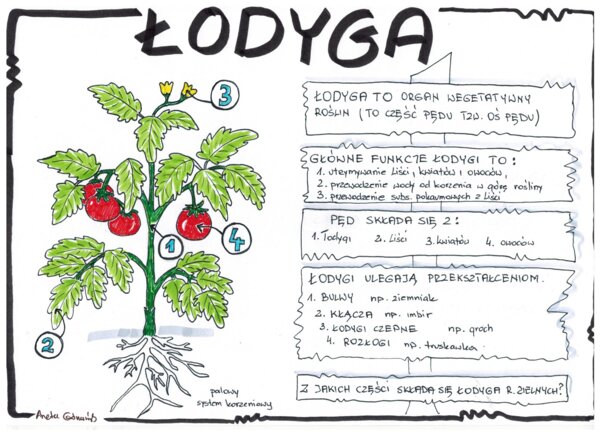 ŁODYGA
3
1
4
2
palowy
system korzeniowy
ŁODYGA TO ORGAN WEGETATYWNY
ROŚLIN (TO CZĘŚĆ PĘDU TZW. OŚ PĘDU)
GŁÓWNE FUNKCJE ŁODYGI TO:
1. utrzymywanie liści, kwiatów i owoców,
2. przewodzenie wody od korzenia w górę rośliny
3. przewodzenie subs. pokarmowych z liści
PĘD SKŁADA SIĘ Z:
1. łodygi 2. liści 3. kwiatów 4. owoców
ŁODYGI ULEGAJĄ PRZEKSZTAŁCENIOM.
1. BULWY np. ziemniak
2. KŁĄCZA np. imbir
3. ŁODYGI CZEPNE np. groch
4. ROZŁOGI np. truskawka
Z JAKICH CZĘŚCI SKŁADA SIĘ ŁODYGA R. ZIELNYCH?
Aneta